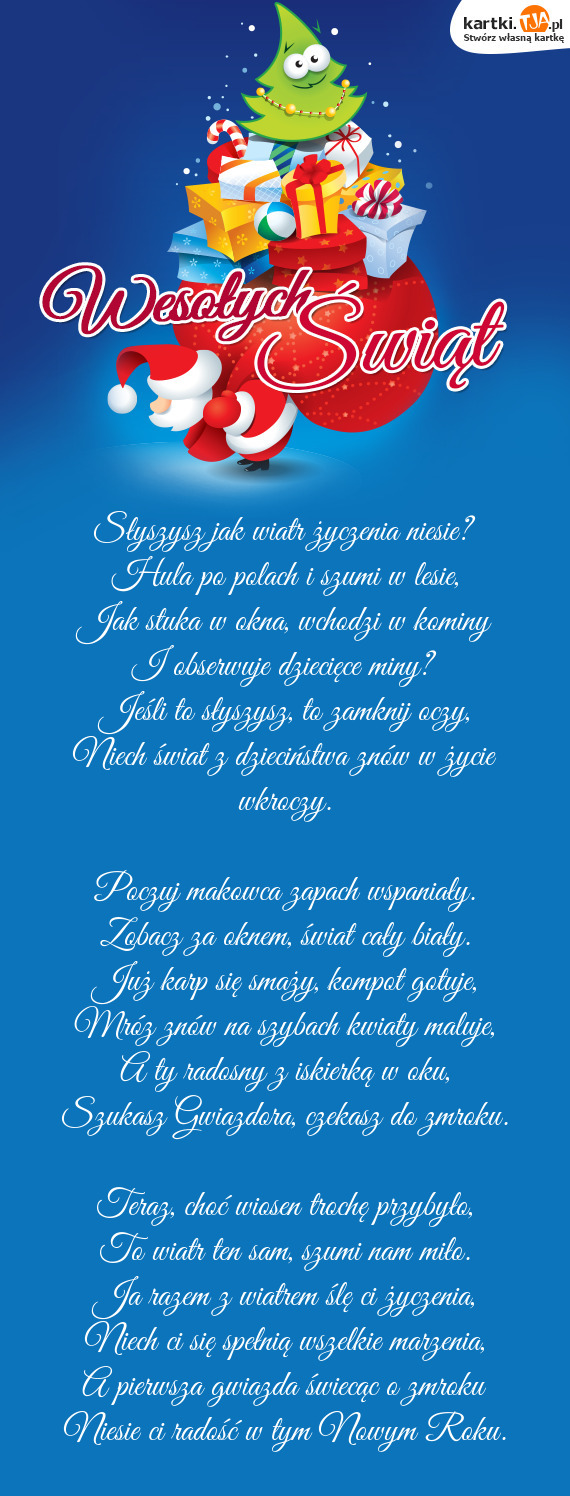 kartki.TJA.pl
Stwórz własną kartkę
Wesołych Świąt
Słyszysz jak wiatr życzenia niesie?
Hula po polach i szumi w lesie,
Jak stuka w okna, wchodzi w kominy
I obserwuje dziecięce miny?
Jeśli to słyszysz, to zamknij oczy,
Niech świat z dzieciństwa znów w życie
wkroczy.
Poczuj makowca zapach wspaniały.
Zobacz za oknem, świat cały biały.
Już karp się smaży, kompot gotuje,
Mróz znów na szybach kwiaty maluje,
A ty radosny z iskierką w oku,
Szukasz Gwiazdora, czekasz do zmroku.
Teraz, choć wiosen trochę przybyło,
To wiatr ten sam, szumi nam miło.
Ja razem z wiatrem ślę ci życzenia,
Niech ci się spełnią wszelkie marzenia,
A pierwsza gwiazda świecąc o zmroku
Niesie ci radość w tym Nowym Roku.